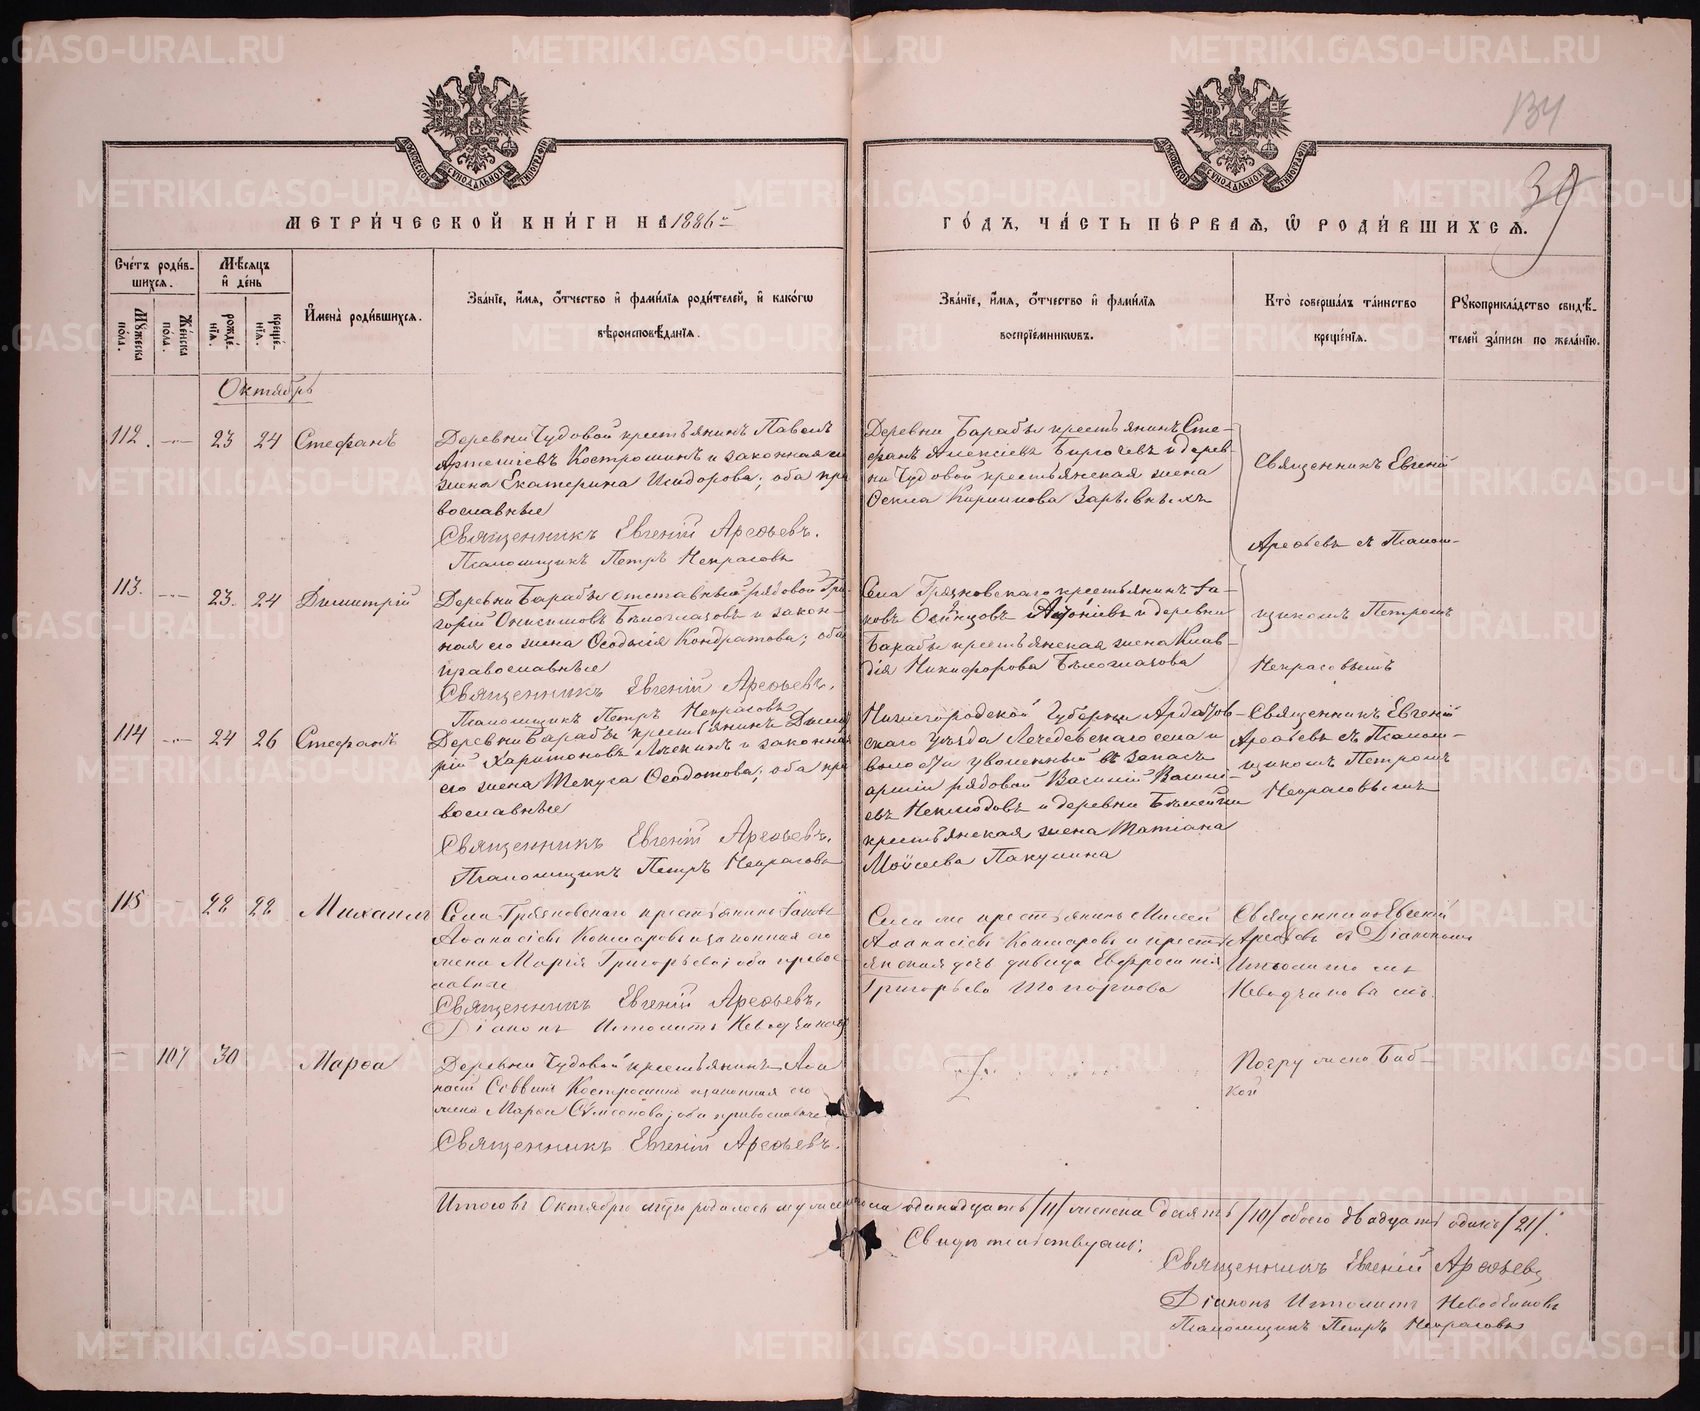 134
39
МЕТРИ́ЧЕСКОЙ КНИ́ГИ НА 1886 й
ГО́ДЪ, ЧА́СТЬ ПЕ́РВАЯ, Ѡ РОДИ́ВШИХСЯ.
Сче́тъ роди́в-
шихся.
Мѣ́сяцъ
и҆ де́нь
Имена̀ роди́вшихся.
Зва́нїе, и҆́мя, ѻ҆́тчество и҆ фами́лїя роди́телей, и҆ како́гѡ
вѣроисповѣ́данїя.
Зва́нїе, и҆́мя, ѻ҆́тчество и҆ фами́лїя
воспрїе́мникѡвъ.
Кто̀ соверша́лъ та́инство
креще́нїя.
Рꙋкоприкла́дство свидѣ́-
телей за́писи по жела́нїю.
Мꙋ́жеска
по́ла.
Же́нска
по́ла.
рожде́-
нїя.
креще́-
нїя.
Октябрь
112. 23 24 Стефанъ
Деревни Чудовой крестьянинъ Павелъ
Артемiевъ Костроминъ и законная его
жена Екатерина Исидорова; оба пра
вославные
Священникъ Евгенiй Арефьевъ.
Псаломщикъ Петръ Некрасовъ
Деревни Барабы крестьянинъ Сте-
фанъ Алексiевъ и дерев-
ни Чудовой крестьянская жена
Кирилова
Священникъ Евгенiй
Арефьевъ съ Псалом-
щикомъ Петромъ
Некрасовымъ
113. 23. 24 Димитрiй
Деревни Барабы отставный рядовой Гри-
горiй Онисимовъ Бѣлоглазовъ и закон-
ная его жена Ѳеодосiя Кондратова; оба
православные
Священникъ Евгенiй Арефьевъ.
Псаломщикъ Петръ Некрасовъ
Села Грязновскаго крестьянинъ Iа-
ковъ и деревни
Барабы крестьянская жена Клав-
дiя Никифорова Бѣлоглазова
114 24 26 Стефанъ
Деревни Барабы крестьянинъ Дими
рiй Харитоновъ и законная
его жена Ѳеодотова; оба пра
вославные
Священникъ Евгенiй Арефьевъ.
Псаломщикъ Петръ Некрасовъ
Нижегородской Губернiи Ардатов-
скаго Уѣзда села и
волости уволенный въ запасъ
армiи рядовой Василiй Васильi-
евъ и деревни
крестьянская жена Татiана
Моѵсеева Пакулина
Священникъ Евгенiй
Арефьевъ съ Псалом-
щикомъ Петромъ
Некрасовымъ
115 28 28 Михаилъ
Села Грязновскаго крестьянинъ Iаковъ
Аѳанасiевъ Кошкаровъ и законная его
жена Марiя Григорьева; оба право-
славные
Священникъ Евгенiй Арефьевъ.
Дiаконъ Ипполитъ Неводчиковъ
Села же крестьянинъ
Аѳанасiевъ Кошкаровъ и кресть
янская дочь дѣвица Евфросинiя
Григорьева Топоркова
Священникъ Евгенiй
Арефьевъ съ Дiакономъ
Ипполитомъ
Неводчиковымъ.
107 30 Марѳа
Деревни Чудовой крестьянинъ Аѳа
насiй Саввинъ Костроминъ и законная его
жена Марѳа Сѵмеонова; оба православные
Священникъ Евгенiй Арефьевъ.
Погружена Баб-
кой
Итого въ Октябрѣ мцѣ родилось мужеска пола одинадцать /11/ женска десять /10/ обоего двадцать одинъ /21/.
Свидѣтельствуемъ:
Священникъ Евгенiй Арефьевъ
Дiаконъ Ипполитъ Неводчиковъ
Псаломщикъ Петръ Некрасовъ
METRIKI.GASO-URAL.RU